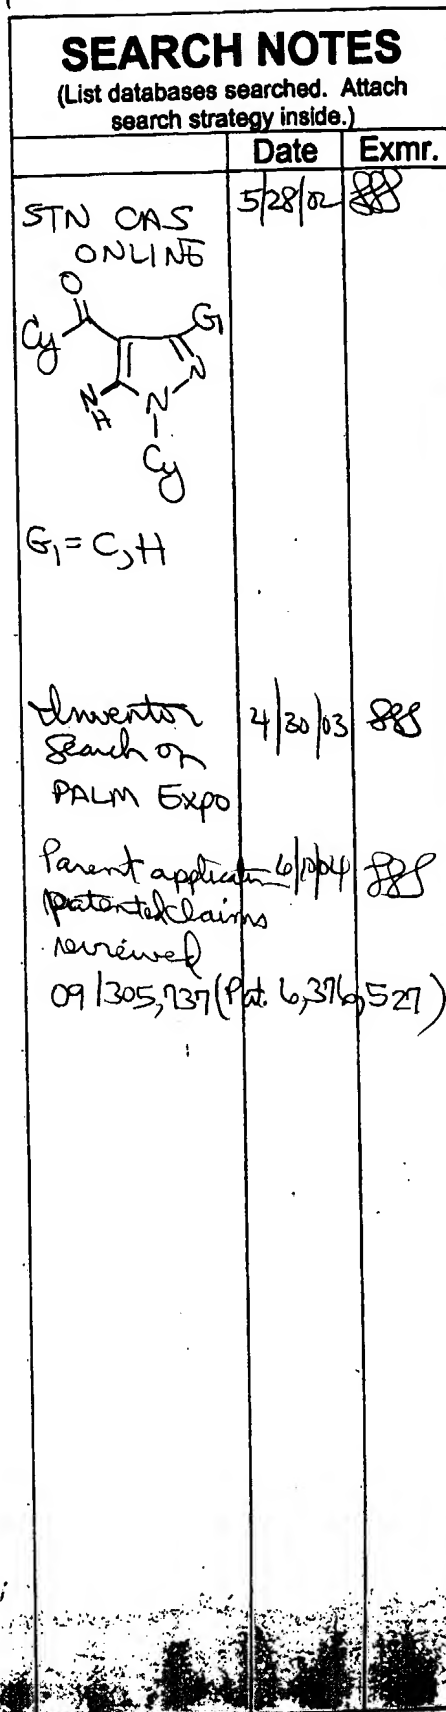 SEARCH NOTES
(List databases searched. Attach
search strategy inside.)
Date Exmr.
STN CAS 5/28/02
ONLINE
O
Cy G1
N
N N
H
Cy
G1 = C, H
Inventor 4/30/03
Search on
PALM Expo
Parent application 6/10/04
patented claims
reviewed
09/305,737 (Pat. 6,376,527)